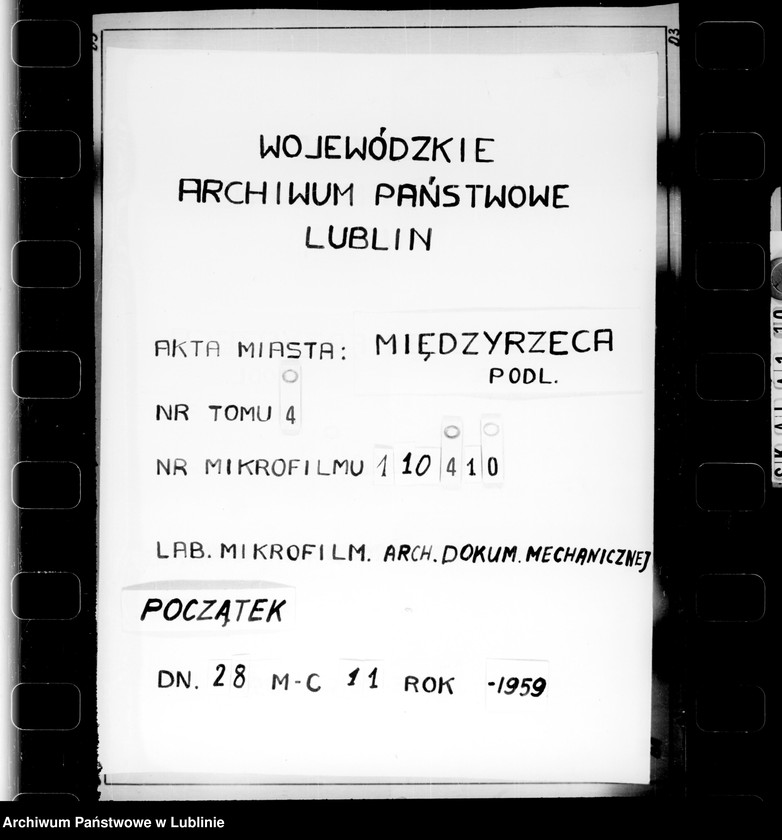 WOJEWÓDZKIE
ARCHIWUM PAŃSTWOWE
LUBLIN
AKTA MIASTA: MIĘDZYRZECA
PODL.
NR TOMU 4
NR MIKROFILMU 1 10 4 1 0
LAB. MIKROFILM. ARCH. DOKUM. MECHANICZNEJ
POCZĄTEK
DN. 28 M-C 11 ROK -1959
Archiwum Państwowe w Lublinie